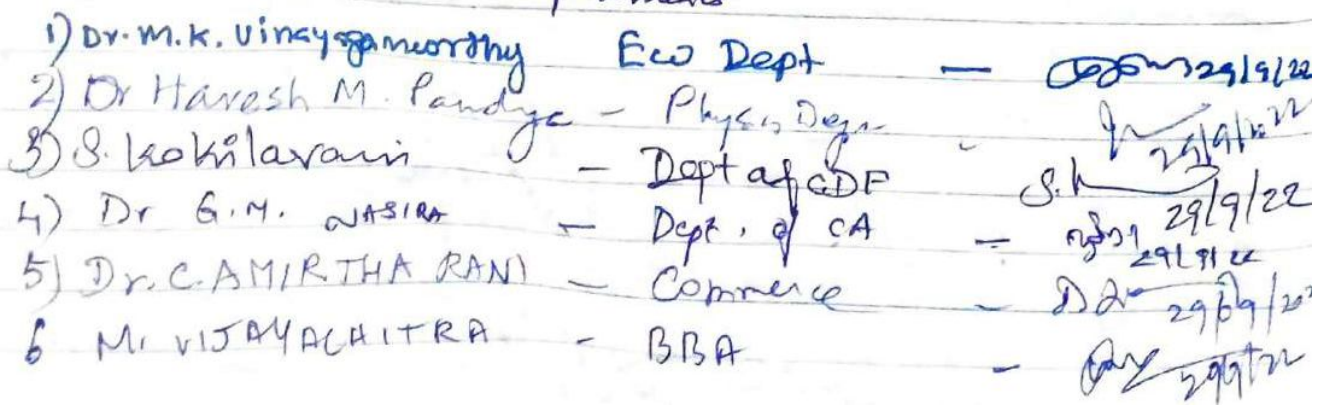 1) Dr. M.K. Vinayagamoorthy Eco Dept — 29/9/22
2) Dr Haresh M. Pandya - Physics 29/9/2022
3) S. Kokilavani - Dept of CDF S.k 29/9/22
4) Dr G.M. NASIRA - Dept. of CA - 29/9/22
5) Dr. C. AMIRTHA RANI - Commerce - 29/09/202
6 M. VIJAYACHITRA - BBA - 29/9/22